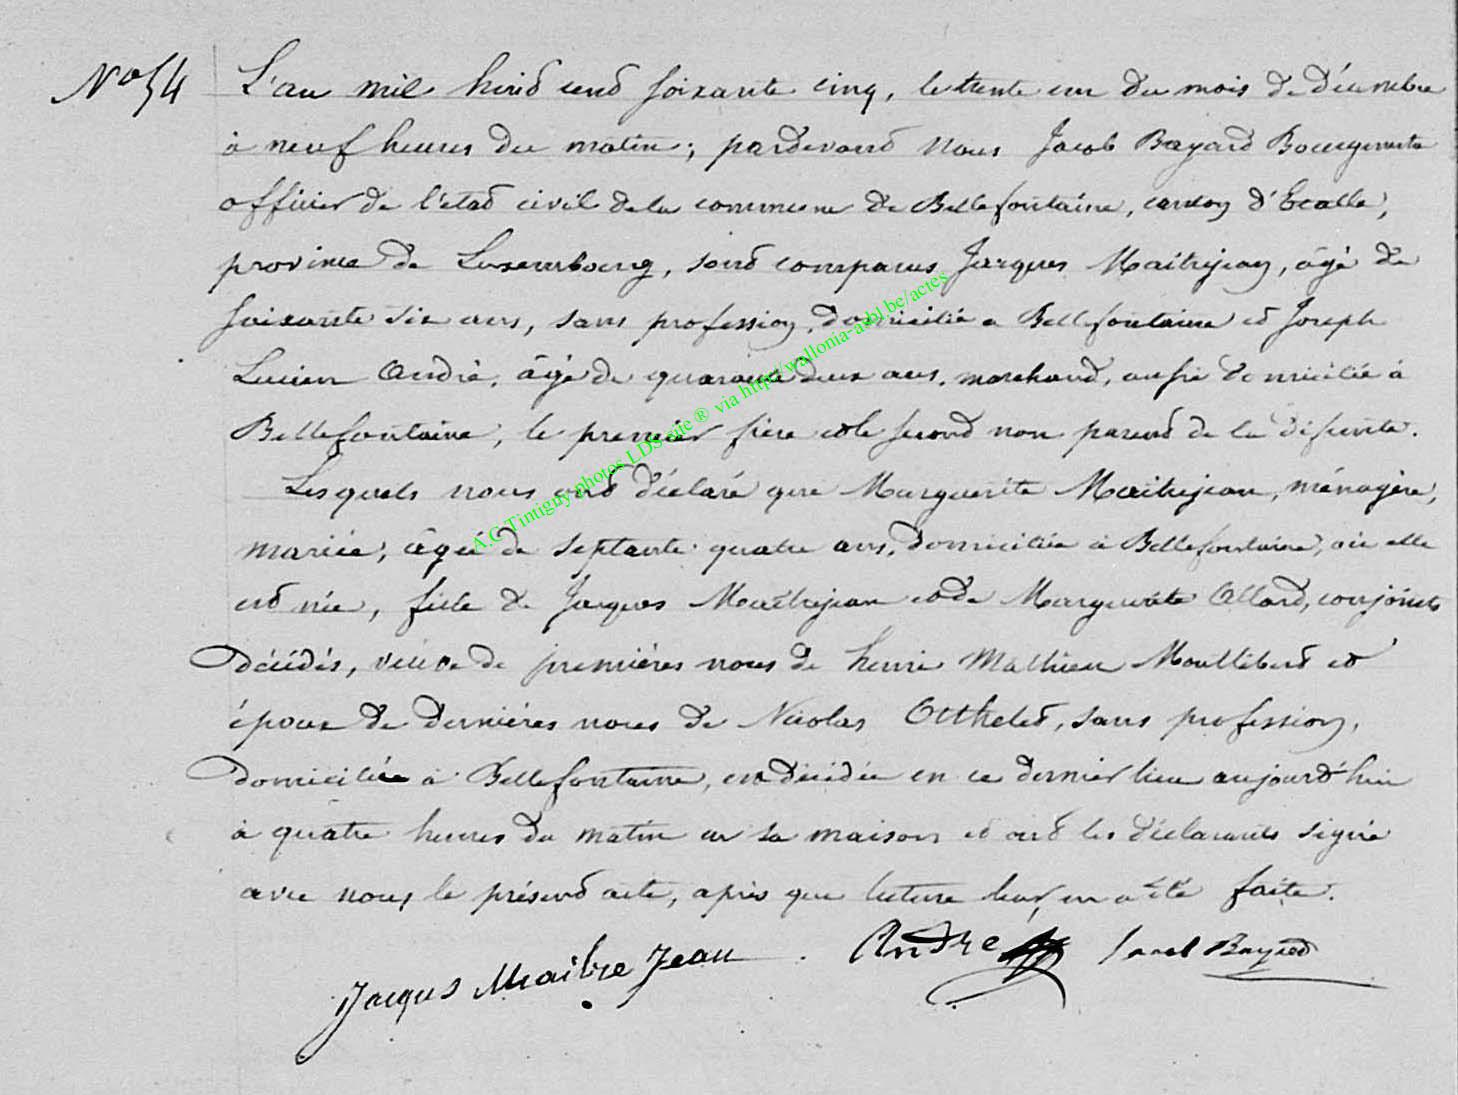 N° 54
L'an mil huit cent soixante cinq, le trente un du mois de Décembre
à neuf heures du matin; pardevant nous Jacob Bayard Bourgmestre
officier de l'état civil de la commune de Bellefontaine, canton d'Etalle,
province de Luxembourg, sont comparus Jacques Maitrejean, âgé de
soixante six ans, sans profession, domicilié a Bellefontaine et Joseph
Lucien André, âgé de quarante deux ans, marchand, aussi domicilié à
Bellefontaine, le premier frère et le second non parent de la défunte.
Lesquels nous ont déclaré que Marguerite Maitrejean, ménagère,
mariée, âgée de septante quatre ans, domiciliée à Bellefontaine, où elle
est née, fille de Jacques Maitrejean et de Marguerite Allard, conjoints
décédés, veuve de premières noces de henri Mathieu Moutlibert et
épouse de dernières noces de Nicolas Otthelet, sans profession,
domiciliée à Bellefontaine, est décédée en ce dernier lieu aujourd'hui
à quatre heures du matin en sa maison et ont les déclarants signé
avec nous le présent acte, après que lecture leur en a été faite.
Jacques Maitre Jean André Jacob Bayard
A.C Tintigny photos LDS site ® via http://wallonia-asbl.be/actes